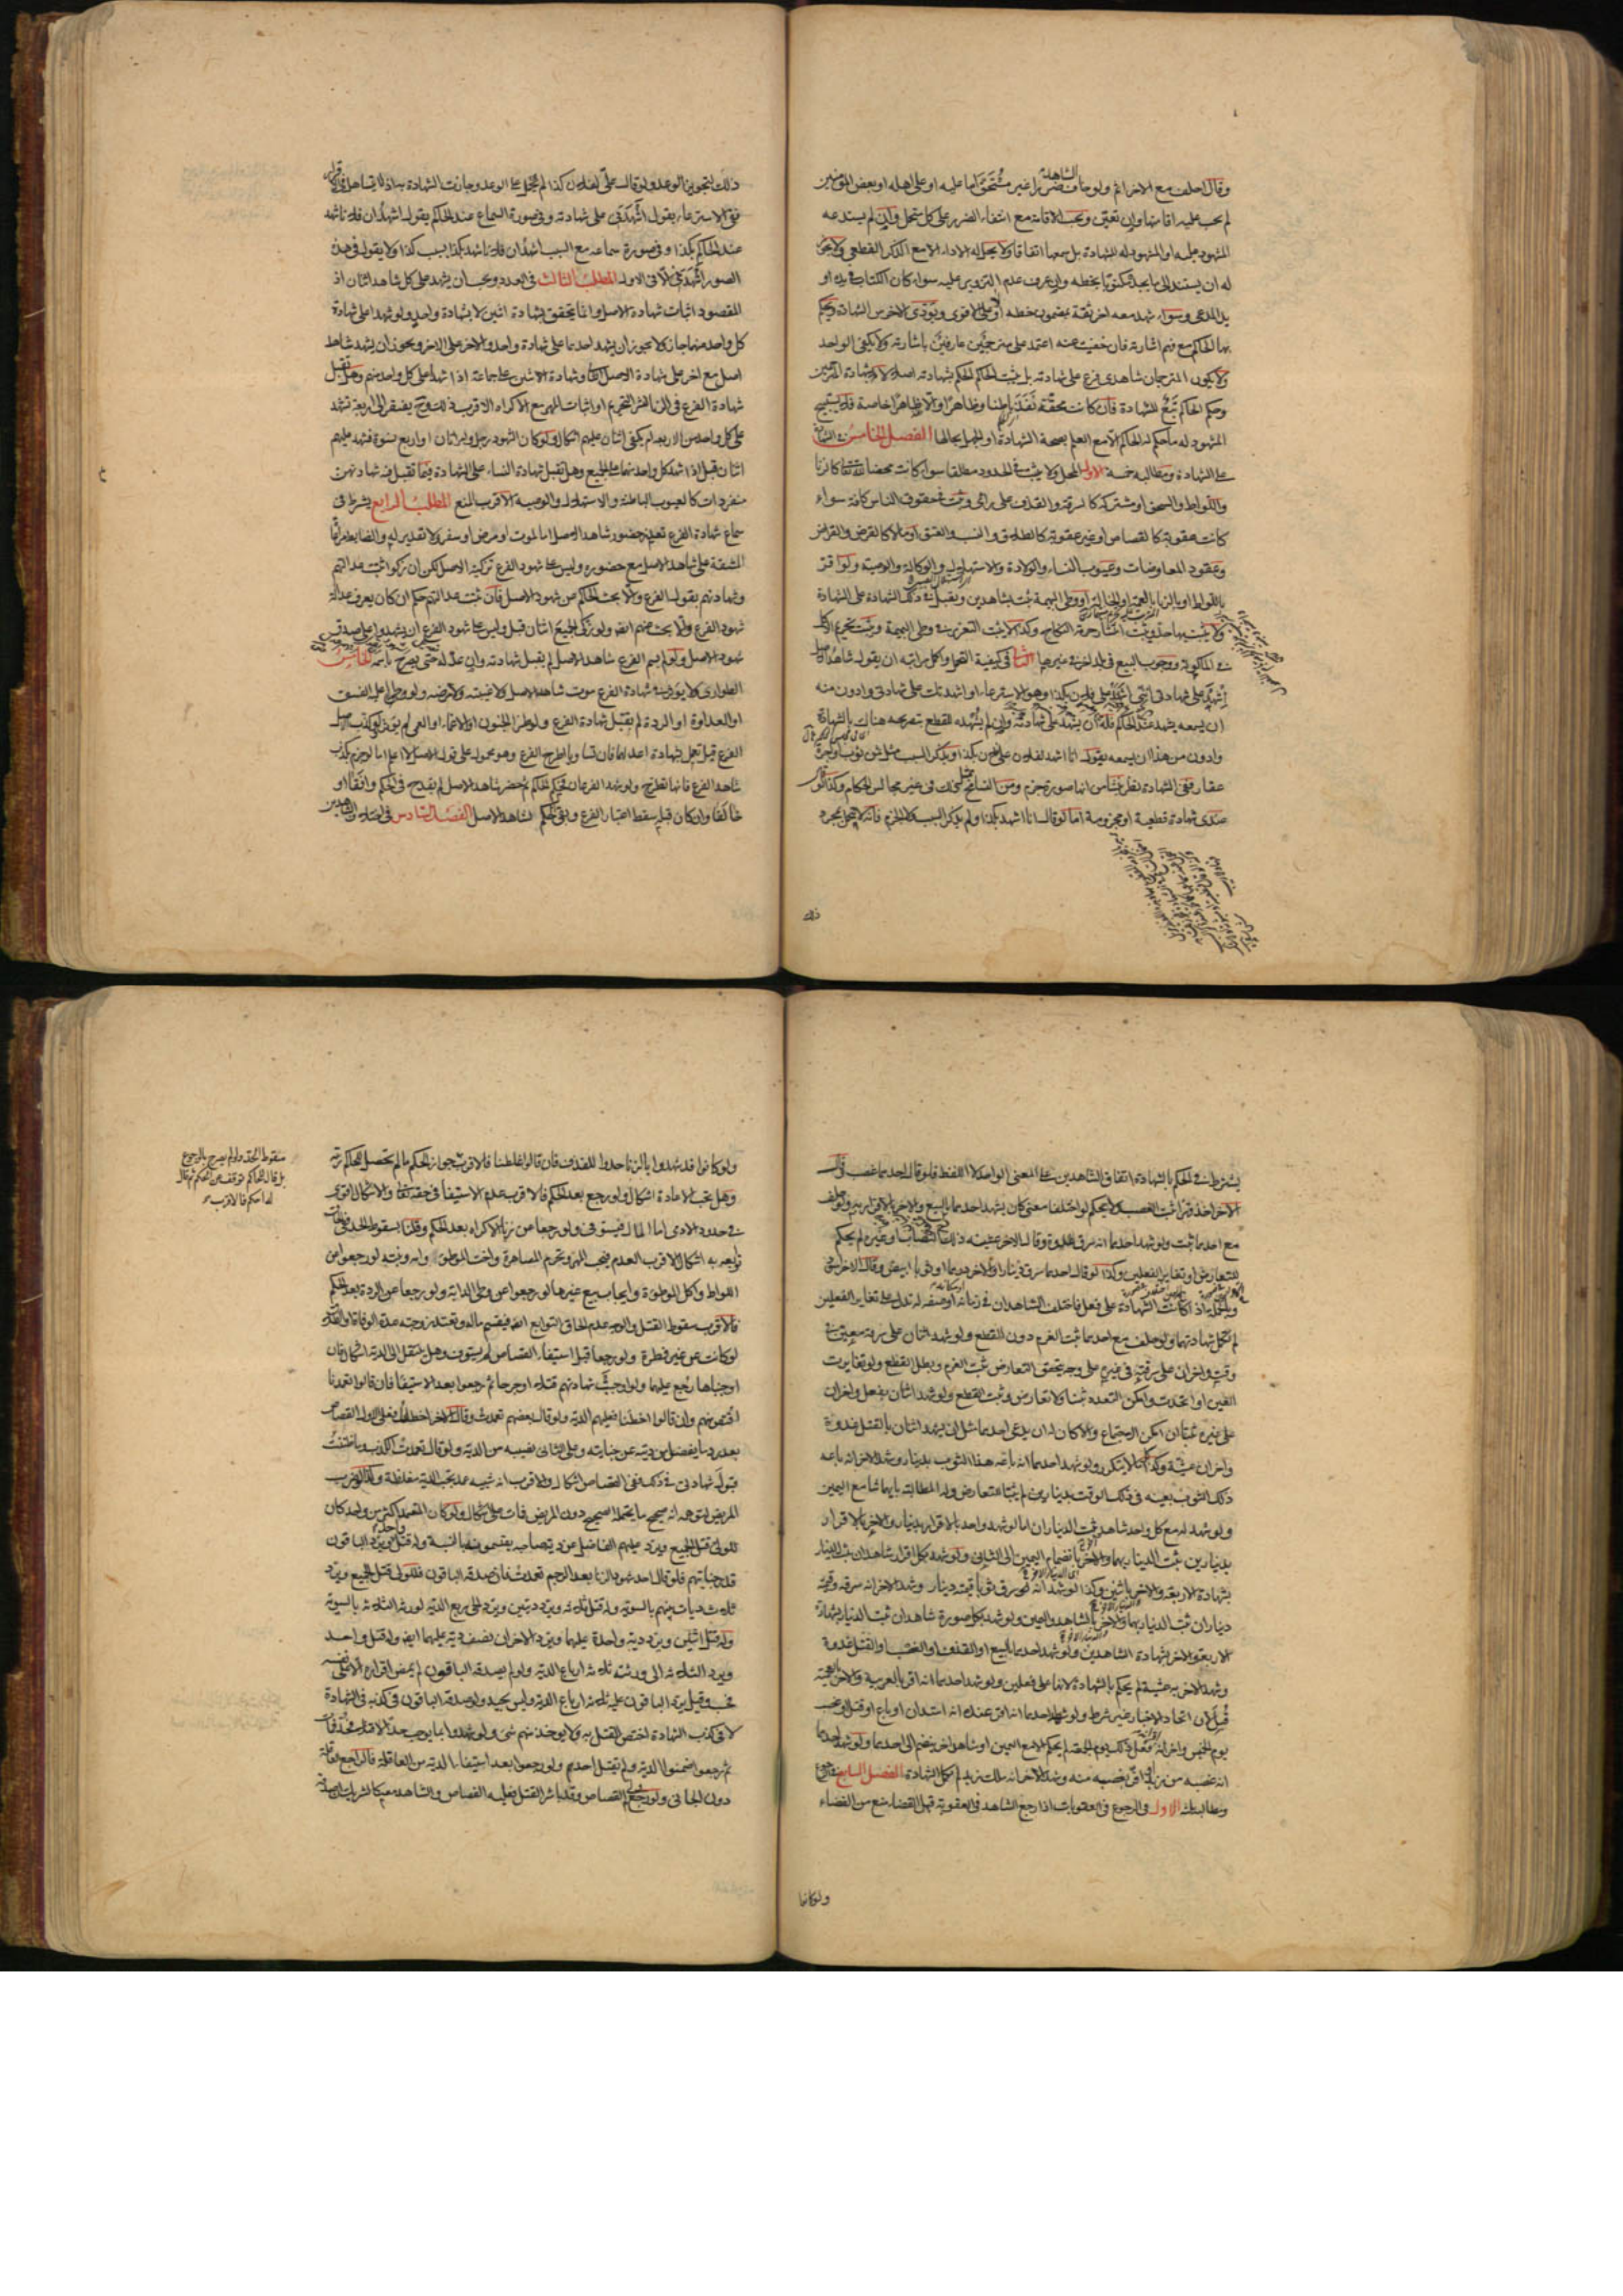 وقال احلف مع الاخر اثم ولو خاف الشاهد ضررا غير مستحق اما عليه او على اهله او بعض المؤمنين
لم يجب عليه اقامتها وان تعين ويجب الاقامة مع انتفاء الضرر على كل متحمل وان لم يستدعه
المشهود عليه او المشهود له للشهادة بل سمعها اتفاقا ولا يحل له الاداء الا مع الذكر القطعي ولا يجوز
له ان يستند الى ما يجده مكتوبا بخطه وان عرف عدم التزوير عليه سواء كان الكتاب في يده او
يد المدعي وسواء شهد معه اخر ثقة بمضمون خطه او لا على الاقوى ويؤدى الاخرس الشهادة ويحكم
بها الحاكم مع فهم اشارته فان خفيت عنه اعتمد على مترجمين عارفين باشارته ولا يكفي الواحد
ولا يكون المترجمان شاهدى فرع على شهادته بل يثبت الحاكم الحكم بشهادته اصلا لا بشهادة المترجمين
وحكم الحاكم تبع للشهادة فان كانت محقة نفذ باطنا وظاهرا والا ظاهرا خاصة فلا يستبيح
المشهود له ما حكم له الحاكم الا مع العلم بصحة الشهادة او الجهل بحالها الفصل الخامس في الشهادة
على الشهادة ومطالبه خمسة الاول المحل ولا يثبت في الحدود مطلقا سواء كانت محضا لله تعالى كالزنا
واللواط والسحق او مشتركة كالسرقة والقذف على راى ويثبت في حقوق الناس كافة سواء
كانت عقوبة كالقصاص او غير عقوبة كالطلاق والنسب والعتق او مالا كالقرض والقراض
وعقود المعاوضات وعيوب النساء والولادة والاستهلال والوكالة والوصية ولو اقر
باللواط او بالزنا بالعمة او الخالة او وطى البهيمة ثبت بشاهدين ويقبل في ذلك الشهادة على الشهادة
ولا يثبت بها حد ويثبت انتشار حرمة النكاح وكذا لا يثبت التعزير في وطى البهيمة ويثبت تحريم الاكل
في الماكولة ووجوب البيع في بلد اخر في غيرها الثاني في كيفية التحمل واكمل مراتبه ان يقول شاهد الاصل
اشهد على شهادتى اننى اشهد على فلان بكذا وهو الاسترعاء او اشهدتك على شهادتى وادون منه
ان يسمعه يشهد عند الحاكم فله ان يشهد على شهادته وان لم يشهده للقطع بتصريحه هناك بالشهادة
وادون من هذا ان يسمعه يقول انا اشهد لفلان على فلان بكذا ويذكر السبب مثل من ثوب او اجرة
عقار ففي الشهادة نظر ينشأ من انها صورة جزم ومن التسامح بمثل ذلك في غير مجالس الحكام وكذا لو قال
عندى شهادة قطعية او مجزومة اما لو قال انا اشهد بكذا ولم يذكر السبب كالجزم فانه لا يحمل بمجرد
ذلك
ذلك لتجويز الوعد ولو قال على لفلان كذا لم يحمل على الوعد وجازت الشهادة به اذ لا يتساهل في الاقرار
ففي الاسترعاء يقول اشهدنى على شهادته وفى صورة السماع عند الحاكم يقول اشهد ان فلانا شهد
عند الحاكم بكذا وفى صورة سماعه مع السبب اشهد ان فلانا شهد بكذا بسبب كذا ولا يقول في هذه
الصور اشهدنى الا في الاول المطلب الثالث في العدد ويجب ان يشهد على كل شاهد اثنان اذ
المقصود اثبات شهادة الاصل وانما يتحقق بشهادة اثنين لا بشهادة واحد ولو شهدا على شهادة
كل واحد منهما جاز كما يجوز ان يشهد احدهما على شهادة واحد والاخر على الاخر ويجوز ان يشهد شاهد
اصل مع اخر على شهادة الاصل الثانى وشهادة الاثنين على جماعة اذا شهدا على كل واحد منهم وهل تقبل
شهادة الفرع في الزنا لنشر التحريم او اثبات المهر مع الاكراه الاقرب ذلك وح يفتقر الى اربعة تشهد
على كل واحد من الاربعة ام يكفى اثنان عليهم اشكال ولو كان الشهود رجلا وامراتان او اربع نسوة فشهد عليهم
اثنان قبل اذا شهد كل واحد منهما على الجميع وهل يقبل شهادة النساء على الشهادة فيما تقبل فيه شهادتهن
منفردات كالعيوب الباطنة والاستهلال والوصية الاقرب المنع المطلب الرابع يشترط في
سماع شهادة الفرع تعذر حضور شاهد الاصل اما لموت او مرض او سفر ولا تقدير له والضابط مراعاة
المشقة على شاهد الاصل مع حضوره وليس على شهود الفرع تزكية الاصل لكن ان زكوا ثبت عدالتهم
وشهادتهم بقول الفرع والا بحث الحاكم عن شهود الاصل فان ثبت عدالتهم حكم ان كان يعرف عدالة
شهود الفرع والا بحث عنهم ايضا ولو زكى الجميع اثنان قبل وليس على شهود الفرع ان يشهدوا على صدق
شهود الاصل ولو لم يسم الفرع شاهد الاصل لم يقبل شهادته وان عدله حتى يصرح باسمه الخامس
الطوارى لا يؤثر في شهادة الفرع موت شاهد الاصل ولا غيبته ولا مرضه ولو طرا عليه الفسق
او العداوة او الردة لم تقبل شهادة الفرع ولو طرا الجنون او الاغماء او العمى لم يؤثر ولو كذب الاصل
الفرع قيل يعمل بشهادة اعدلهما فان تساويا اطرح الفرع وهو محمول على قول الاصل لا اعلم اما لو جزم بكذب
شاهد الفرع فانها تطرح ولو شهد الفرعان فحكم الحاكم ثم حضر شاهد الاصل لم يقدح في الحكم وافقا او
خالفا وان كان قبله سقط اعتبار الفرع وبقى الحكم لشاهد الاصل الفصل السادس في اتحاد الشاهدين
يشترط في الحكم بالشهادة اتفاق الشاهدين على المعنى الواحد لا اللفظ فلو قال احدهما غصب وقال
الاخر اخذ قهرا ثبت الغصب ولا يحكم لو اختلفا معنى كان يشهد احدهما بالبيع والاخر بالاقرار به ولو حلف
مع احدهما ثبت ولو شهد احدهما انه سرق غدوة وقال الاخر عشية ذلك النصاب او غيره لم يحكم
للتعارض او تغاير الفعلين وكذا لو قال احدهما سرق دينارا والاخر درهما او ثوبا ابيض وقال الاخر اسود
وبالجملة اذا كانت الشهادة على فعل فاختلف الشاهدان في زمانه او مكانه او صفة له تدل على تغاير الفعلين
لم تكمل شهادتهما ولو حلف مع احدهما ثبت الغرم دون القطع ولو شهد اثنان على سرقة معين في
وقت واخران على سرقته في غيره على وجه يتحقق التعارض ثبت الغرم وبطل القطع ولو تغايرت
العين او اتحدت وامكن التعدد ثبتا ولا تعارض وثبت القطع ولو شهد اثنان بفعل واخران
على غيره ثبتا ان امكن الاجتماع والا كان له ان يدعى احدهما مثل ان يشهد اثنان بالقتل غدوة
واخران عشية وكذا ما لا يتكرر ولو شهد احدهما انه باعه هذا الثوب بدينار وشهد الاخر انه باعه
ذلك الثوب بعينه في ذلك الوقت بدينارين لم يثبتا للتعارض وله المطالبة بايهما شاء مع اليمين
ولو شهد له مع كل واحد شاهد ثبت الديناران اما لو شهد واحد بالاقرار بدينار والاخر بالاقرار
بدينارين ثبت الدينار بهما والاخر بانضمام اليمين الى الثانى ولو شهد بكل اقرار شاهدان ثبت الدينار
بشهادة الاربعة والاخر باثنين وكذا لو شهد انه سرق ثوبا قيمته دينار وشهد الاخر انه سرقه وقيمته
ديناران ثبت الدينار بهما والاخر بالشاهد واليمين ولو شهد بكل صورة شاهدان ثبت الدينار بشهادة
الاربعة والاخر بشهادة الشاهدين ولو شهد احدهما بالبيع او القذف او الغصب او القتل غدوة
وشهد الاخر به عشية لم يحكم بالشهادة لانها على فعلين ولو شهد احدهما انه اقر بالعربية والاخر بالعجمية
قبل لان اتحاد الاخبار غير شرط ولو شهد احدهما انه اقر عنده انه استدان او باع او قتل او غصب
يوم الخميس واخر انه فعل ذلك يوم الجمعة لم يحكم الا مع اليمين او شاهد اخر ينضم الى احدهما ولو شهد احدهما
انه غصبه من زيد او اقر بغصبه منه وشهد الاخر انه ملك زيد لم تكمل الشهادة الفصل السابع في الرجوع
ومطالبه ثلثة الاول في الرجوع في العقوبات اذا رجع الشاهد في العقوبة قبل القضاء منع من القضاء
ولو كانوا
ولو كانوا قد شهدوا بالزنا حدوا للقذف فان قالوا غلطنا فالاقرب جواز الحكم ما لم تحصل للحاكم ريبة
وهل يجب الاعادة اشكال ولو رجع بعد الحكم فالاقرب عدم الاستيفاء في حقه تعالى والاشكال اقوى
في حدود الادمى اما المال فيستوفى ولو رجعا عن زنا الاكراه بعد الحكم وقلنا بسقوط الحد ففي اثبات
توابعه به اشكال الاقرب العدم فيجب المهر وتحرم المصاهرة واخت الموطوء وامه وبنته لو رجعوا عن
اللواط واكل الموطوءة وايجاب بيع غيرها لو رجعوا عن وطى الدابة ولو رجعا عن الردة بعد الحكم
فالاقرب سقوط القتل والوجه عدم الحاق التوابع ايضا فيقسم ماله وتعتد زوجته عدة الوفاة او الطلاق
لو كانت عن غير فطرة ولو رجعا قبل استيفاء القصاص لم يستوف وهل ينتقل الى الدية اشكال فان
اوجبناها رجع عليهما ولو اوجبت شهادتهم قتلا او جرحا ثم رجعوا بعد الاستيفاء فان قالوا تعمدنا
اقتص منهم وان قالوا اخطانا فعليهم الدية ولو قال بعضهم تعمدت وقال الاخر اخطات فعلى الاول القصاص
بعد رد ما يفضل من ديته عن جنايته وعلى الثانى نصيبه من الدية ولو قال تعمدت الكذب وما ظننت
قبول شهادتى في ذلك ففي القصاص اشكال والاقرب انه شبيه عمد يجب الدية مغلظة وكذا لو ضرب
المريض لتوهمه انه صحيح ما يحتمله الصحيح دون المريض فمات على اشكال ولو كان المتعمد اكثر من واحد كان
للولى قتل الجميع ويرد عليهم الفاضل عن دية صاحبه يقتسمونه بالنسبة وله قتل واحد ويرد الباقون
قدر جنايتهم فلو قال احد شهود الزنا بعد الرجم تعمدت فان صدقه الباقون فللولى قتل الجميع ويرد
ثلث ديات بينهم بالسوية وله قتل ثلثة ويرد ديتين ويرد الحى ربع الدية لورثة الثلثة بالسوية
وله قتل اثنين ويرد دية واحدة عليهما ويرد الاخران نصف دية عليهما ايضا وله قتل واحد
ويرد الثلثة الى ورثته ثلثة ارباع الدية ولو لم يصدقه الباقون لم يمض اقراره الا على نفسه
فحسب وقيل يرد الباقون عليه ثلثة ارباع الدية وليس بجيد ولو صدقه الباقون في كذبه في الشهادة
لا في كذب الشهادة اختص القتل به ولا يوخذ منهم شئ ولو شهدوا بما يوجب حدا لا قتلا فحد فمات
ثم رجعوا ضمنوا الدية ولم يقتل احدهم ولو رجعوا بعد استيفاء الدية من العاقلة فالراجع العاقلة
دون الجانى ولو رجع ولى القصاص وقد باشر القتل فعليه القصاص والشاهد معه كالشريك
سقوط الحد ولو لم يصرح بالرجوع
بل قال للحاكم توقف عن الحكم ثم قال
له احكم فالاقرب